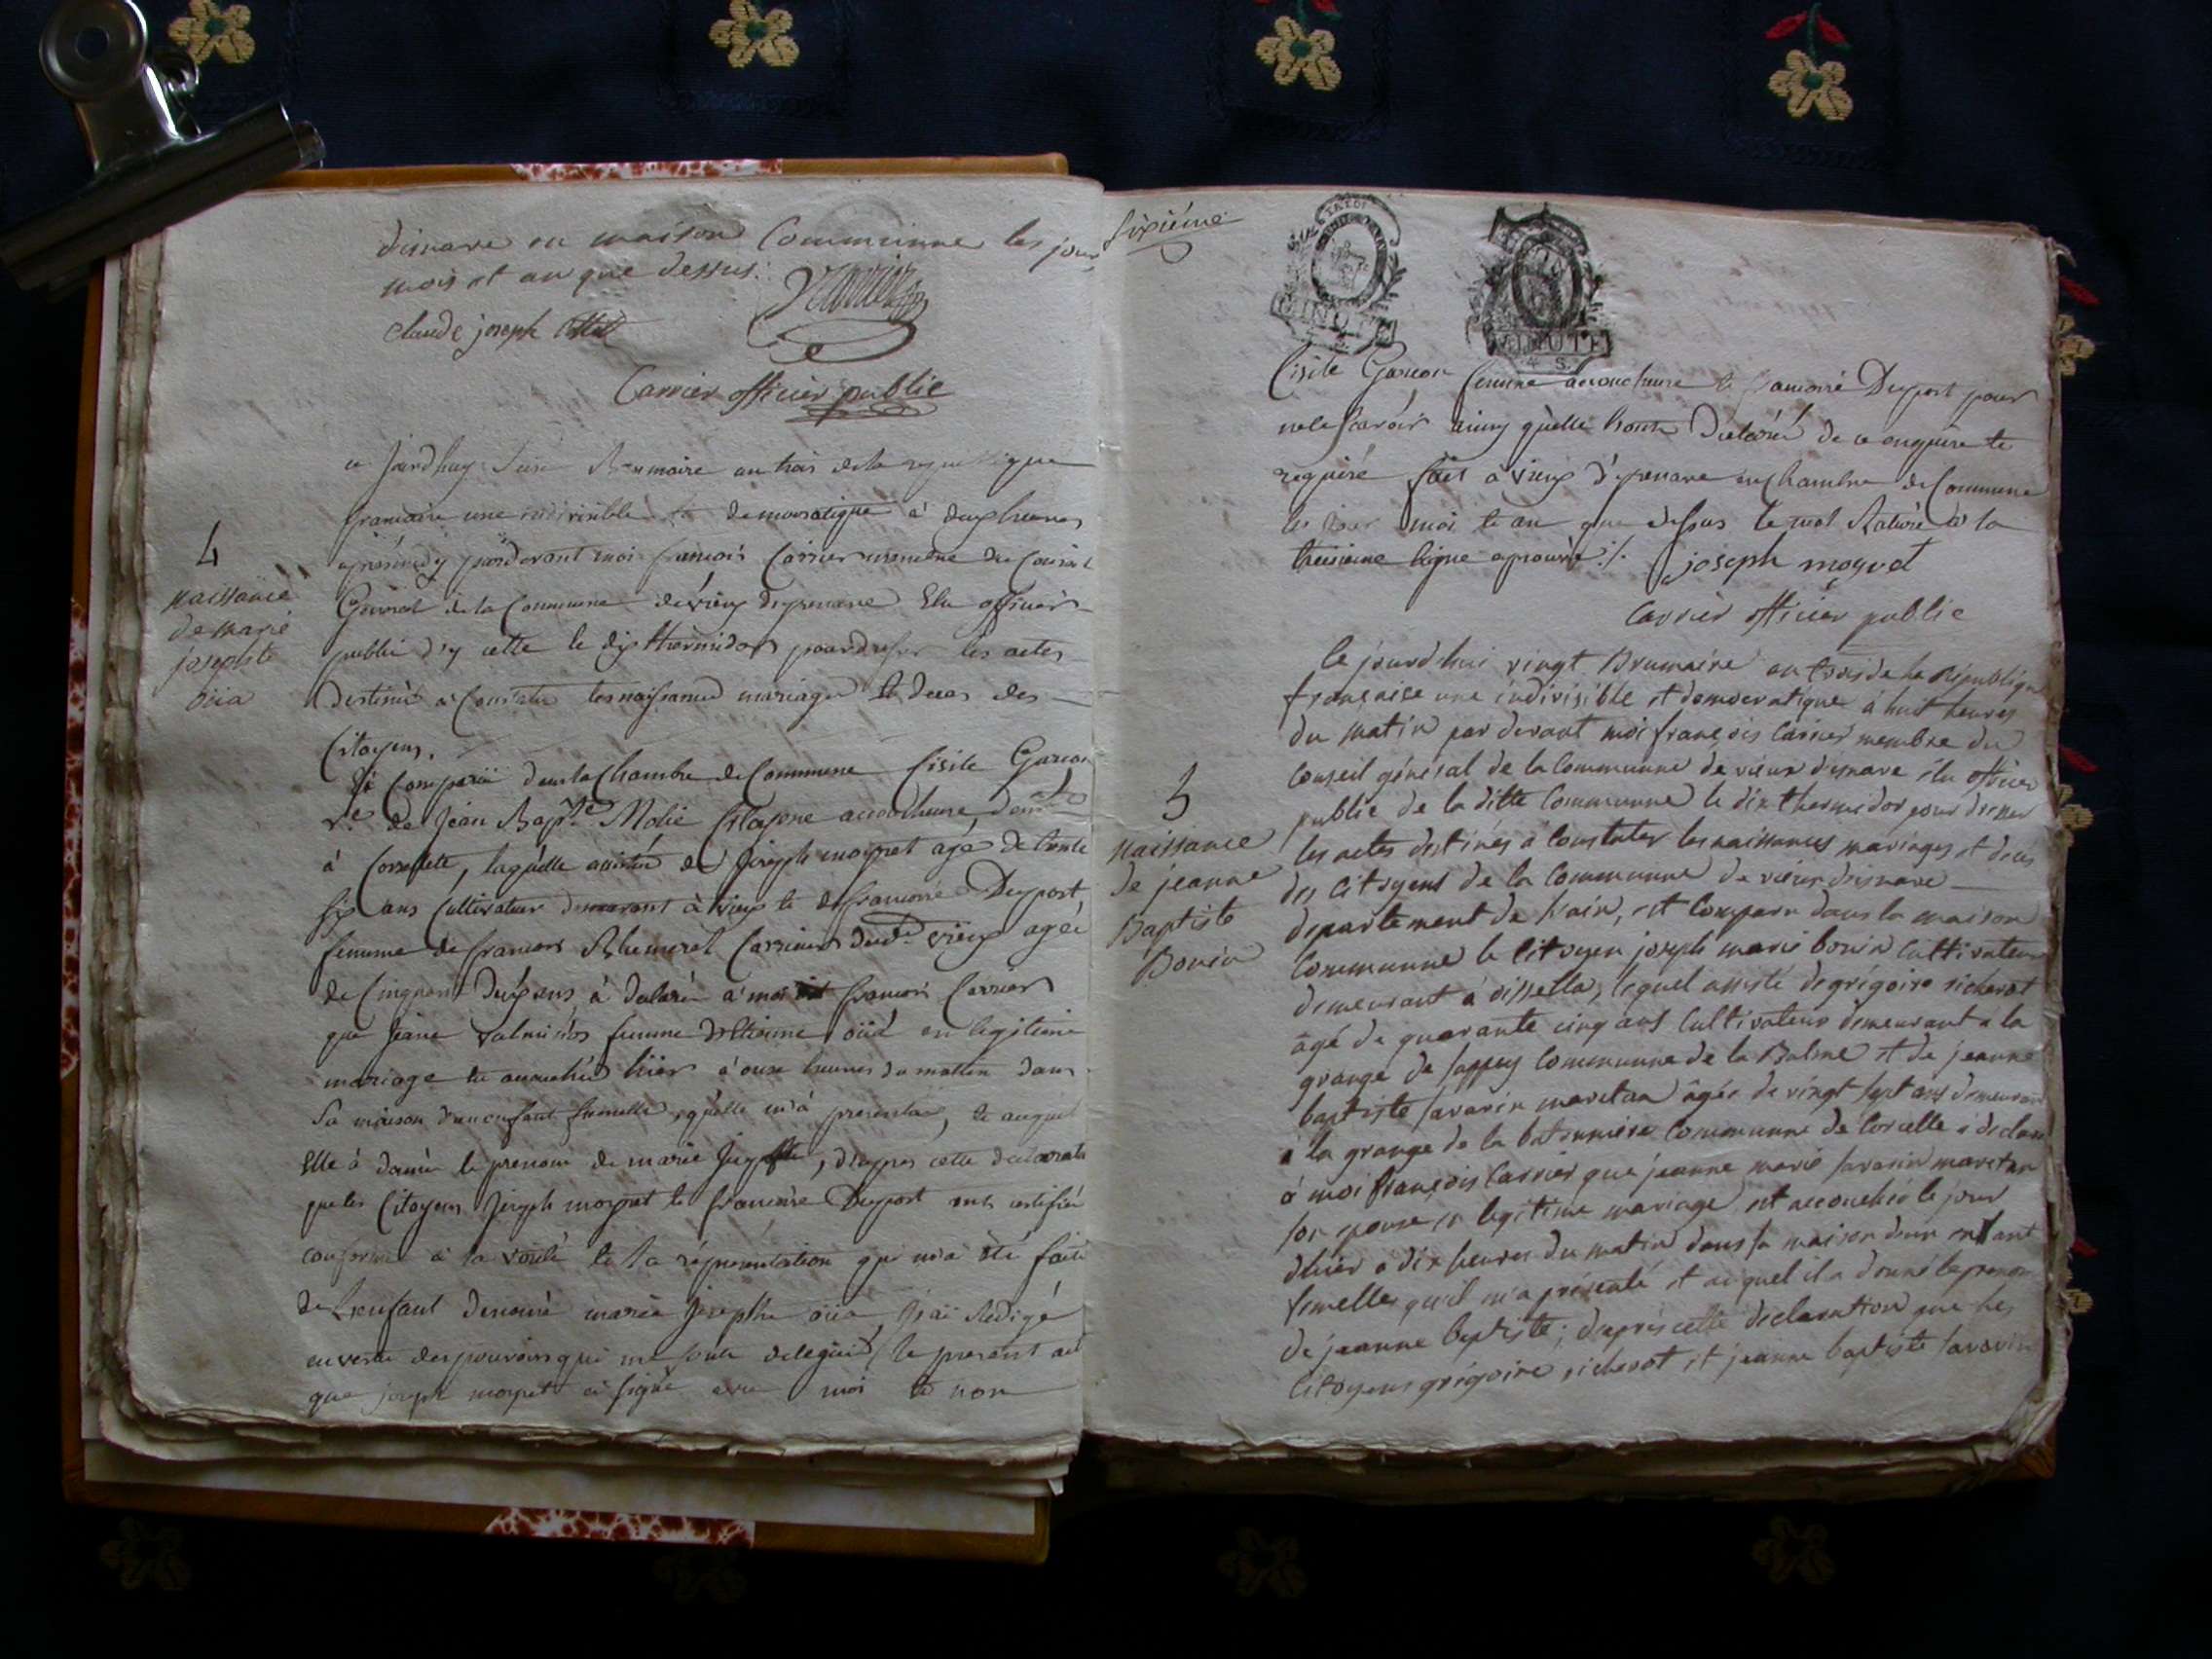 disnave en maison Communne les jour
mois et an que dessus.
claude joseph
Carrier officier public
4
naissance
de marie
josephte
oüa
ce jourdhuy Brumaire an trois de la republique
francaise une indivisible et democratique à deux heures
pardevant moi francois Carrier membre du Conseil
General de la Commune de vieux Elu officier
public d'y cette le dix thermidor pour dresser les actes
destinés a Constater les naissances mariages et deces des
Citoyens.
à Comparüe dans la Chambre de Commune Cisile Garcon
ve de Jean Bapte Molie Citoyene accoucheuse, dem
à laquelle assistée de joseph moynet agé de trente
six ans Cultivateur demeurant à vieux et de francoise Duport,
femme de francois vieux agée
de Cinquante deux ans à declaré à moi francois Carrier
que jeane femme en legitime
mariage et accouchée hier à onze heures du mattin dans
Sa maison d'un enfant femelle, quelle m'à presenter, et auquel
Elle à donné le prenom de marie josephte, d'apres cette declarati
que les Citoyens joseph moynet et francoise Duport ont certifié
conforme à la verité et la représentation qui m'a été faite
de L'enfant denomé marie josephte oüa j'ai Redigé
en vertu des pouvoirs qui me sont delegués le present act
que joseph moynet à signé avec moi et non
sixième
MINUTE
MINUTE
4 S.
Cisile Garcon femme accoucheuse et francoise Duport pour
ne le scavoir ainsy quelle l'onts declaré de ce enquise et
requise fait à vieux d'isenave en Chambre de Commune
les jour mois et an que dessus le mot Rature à la
ligne aprouvé ./. joseph moynet
Carrier officier public
5
naissance
de jeanne
Baptiste
Bonin
Ce jourd'hui vingt Brumaire an trois de la République
française une indivisible et democratique à huit heures
du matin par devant moi françois Carrier membre du
Conseil général de la Communne de vieux disnave élu officier
public de la ditte Communne le dix thermidor pour dresser
les actes destinés à Constater les naissances mariages et deces
des Citoyens de la Communne de vieux disnave
departement de l'ain, est Comparu dans la maison
Communne le Citoyen joseph marie bonin Cultivateur
demeurant à oissella, lequel assisté de grégoire richerot
âgé de quarante cinq ans Cultivateur demeurant a la
grange de sappey Communne de la Balme et de jeanne
baptiste savarin maretan âgée de vingt sept ans demeurant
à la grange de la batonniere Communne de Corcelle a declaré
à moi françois Carrier que jeanne marie savarin maretan
son epouse en legitime mariage est accouchée le jour
dhier à dix heures du matin dans sa maison d'un enfant
femelle qu'il m'a présenté et auquel il a donné le prenom
de jeanne baptiste; d'après cette declaration que les
Citoyens grégoire richerot et jeanne baptiste savarin